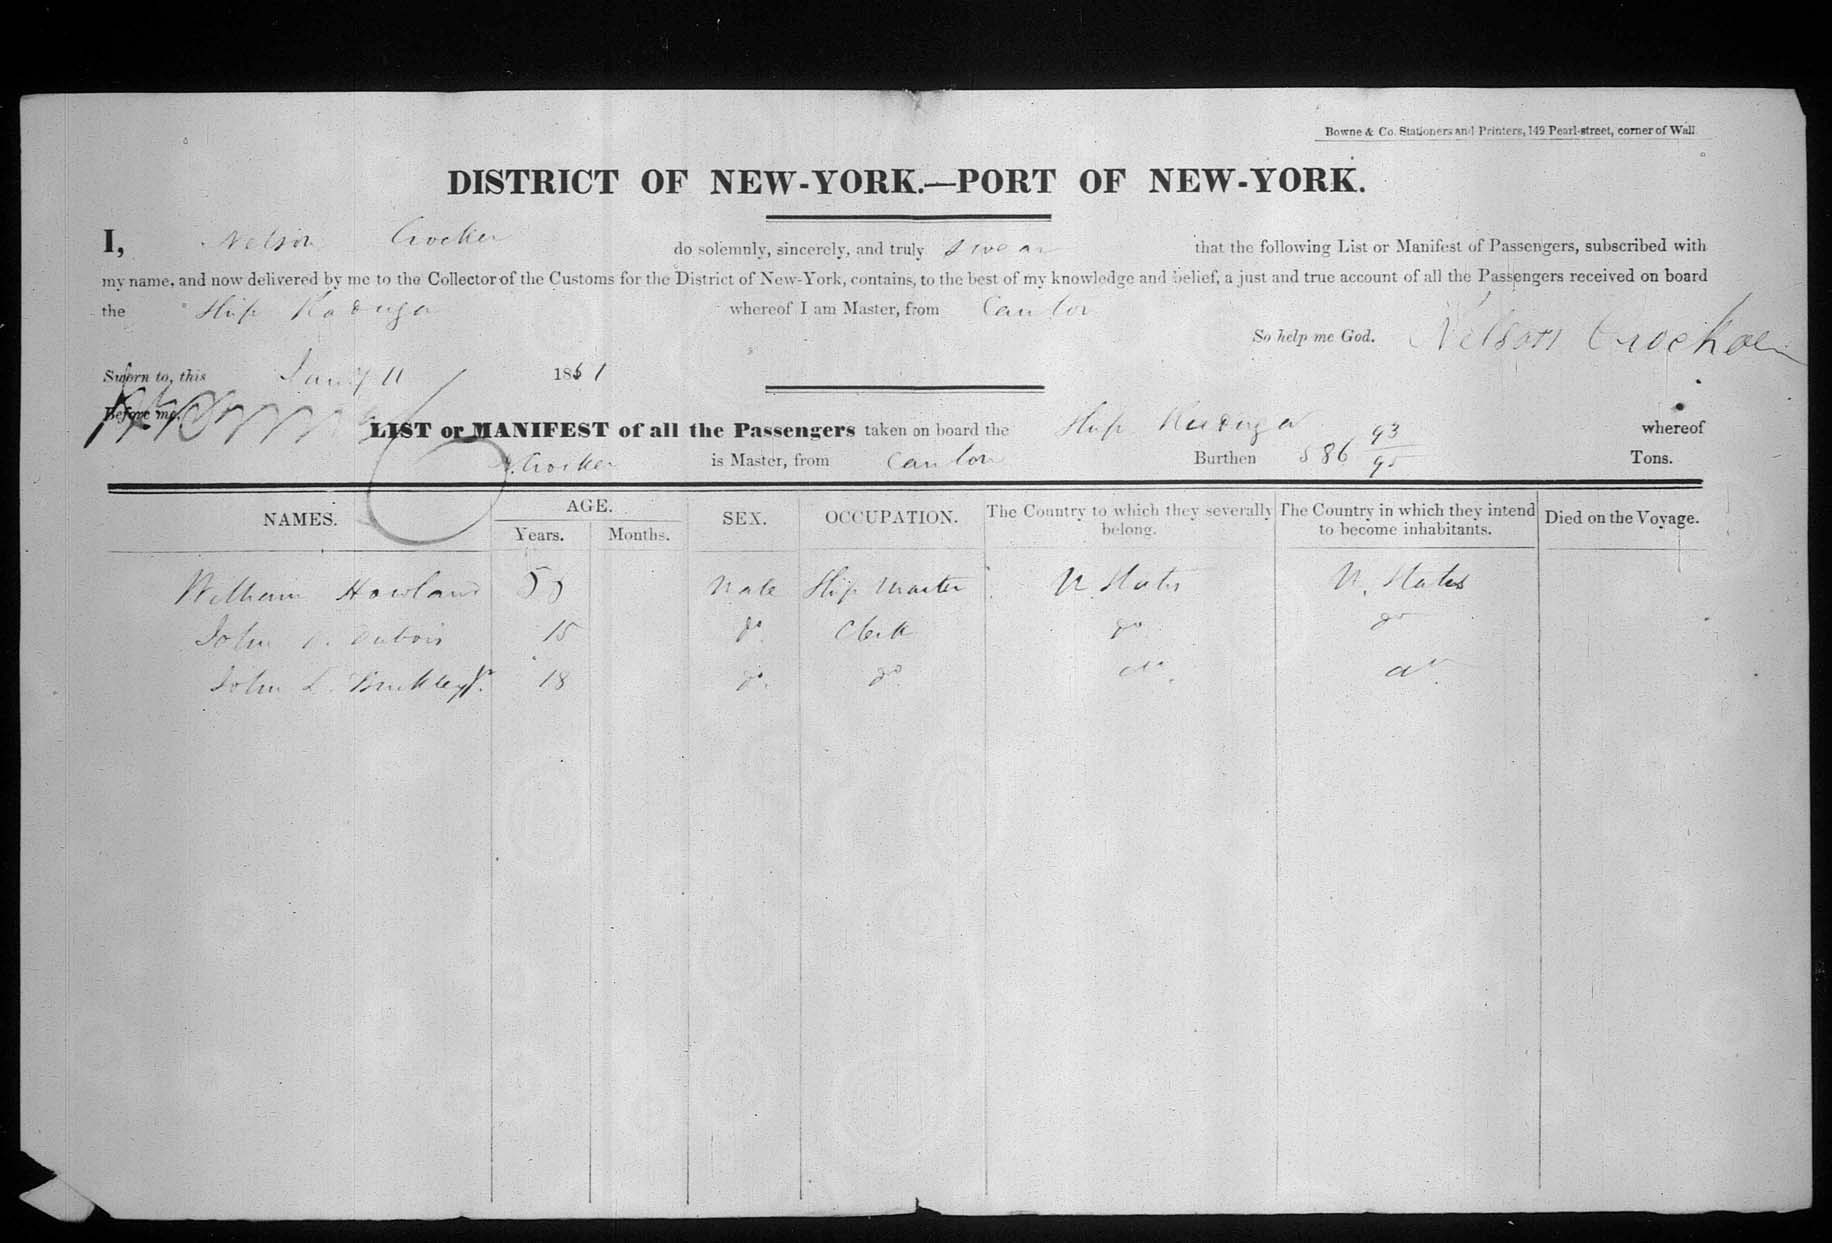 Bowne & Co. Stationers and Printers, 149 Pearl-street, corner of Wall
DISTRICT OF NEW-YORK.—PORT OF NEW-YORK.
I, Nelson Crocker do solemnly, sincerely, and truly swear that the following List or Manifest of Passengers, subscribed with
my name, and now delivered by me to the Collector of the Customs for the District of New-York, contains, to the best of my knowledge and belief, a just and true account of all the Passengers received on board
the Ship Kaduga whereof I am Master, from Canton
So help me God. Nelson Crocker
Sworn to, this Jany 11 1851
Before me,
LIST or MANIFEST of all the Passengers taken on board the Ship Kaduga whereof
N. Crocker is Master, from Canton Burthen 586 93/95 Tons.
NAMES. AGE. SEX. OCCUPATION. The Country to which they severally belong. The Country in which they intend to become inhabitants. Died on the Voyage.
Years. Months.
William Howland Male Ship Master U. States U. States
John Dubois 15 do Clerk do do
John L. Buckley Jr. 18 do do do do